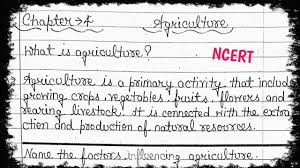 Chapter→4 Agriculture
What is agriculture? NCERT
Agriculture is a primary activity that includ
growing crops, vegetables, fruits, flowers and
rearing livestock. It is connected with the extra
ction and production of natural resources.
Name the factors influencing agriculture.